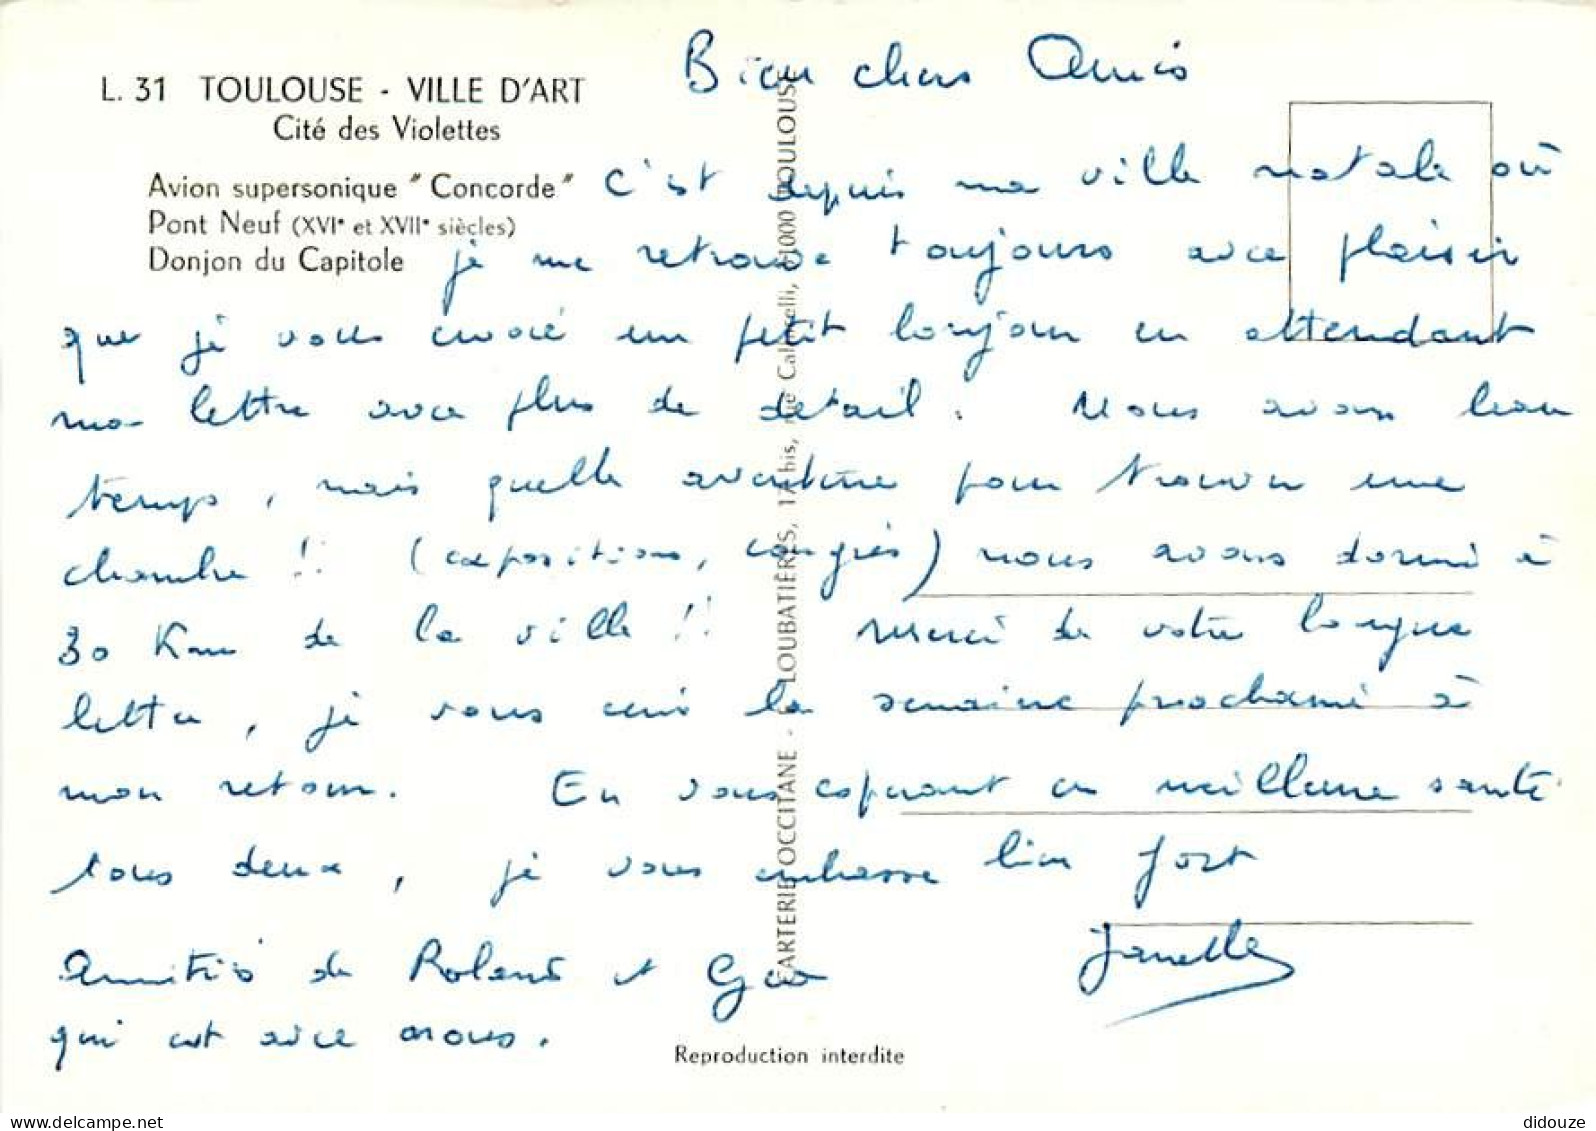 L. 31 TOULOUSE - VILLE D'ART
Cité des Violettes
Avion supersonique "Concorde"
Pont Neuf (XVIe et XVIIe siècles)
Donjon du Capitole
Bien chers Amis
C'est depuis ma ville natale où
je me retrouve toujours avec plaisir
que je vous envoie un petit bonjour en attendant
ma lettre avec plus de détail. Nous avons beau
temps, mais quelle aventure pour trouver une
chambre !! (expositions, congrès) nous avons dormi à
30 Km de la ville !! Merci de votre longue
lettre, je vous écris la semaine prochaine à
mon retour. En vous espérant en meilleure santé
tous deux, je vous embrasse bien fort
Janelle
Amitiés de Roland et Geo
qui est avec nous.
CARTERIE OCCITANE - LOUBATIÈRES, 17 bis, rue 31000 TOULOUSE
Reproduction interdite
www.delcampe.net
didouze